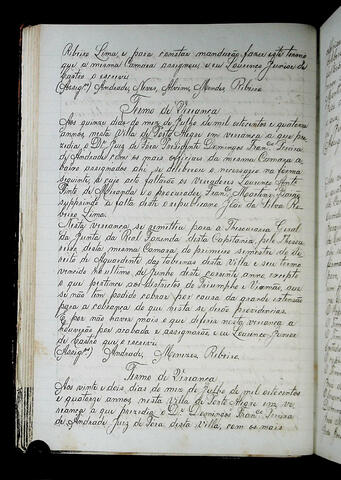 Ribeiro Lima, e para constar mandarão fazer este termo
que a mesma Camara assignou e eu Lourenço Junior de
Castro o escrevi
(Assigos) Andrade, Neves, Alvim, Mendes Ribeiro
Termo de Vereança
Aos quinze dias do mez de Julho de mil oitocentos e quatorze
annos nesta Villa de Porto Alegre em vereança a que pre-
zidio o Dr. Juiz de Fora Prezidente Domingos Franco Pereira
de Andrade com os mais officiaes da mesma Camara a-
baixo assignados ahi se deliberou o necessario na forma
seguinte, e que este faltarão os Vereadores Lourenço Anto
Pinto de Miranda e o procurador Franco Martins
supprindo a falta deste o republicano João da Silva Ri-
beiro Lima.
Nesta vereança se remetteu para a Thezouraria Geral
da Junta da Real Fazenda desta Capitania, pelo Thezou-
reiro desta mesma Camara do primeiro semestre do di-
reito de Aguardente das tabernas desta Villa e seu Termo
vencido no ultimo de Junho deste corrente anno excepto
o que pertence aos districtos de Triumpho e Viamão, que
se não tem podido cobrar por causa da grande extensão
para a cobrança do que nesta se derão providencias.
E por não haver mais o que diferir nesta vereança a
houverão por acabada e assignarão e eu Lourenço Junior
de Castro que o escrevi.
(Assigos) Andrade, Menezes Ribeiro
Termo de Vereança
Aos vinte e dois dias do mez de Julho de mil oitocentos
e quatorze annos nesta Villa de Porto Alegre em ve-
reança a que prezidio o Dr. Domingos Franco Pereira
de Andrade Juiz de Fora desta Villa, com os mais